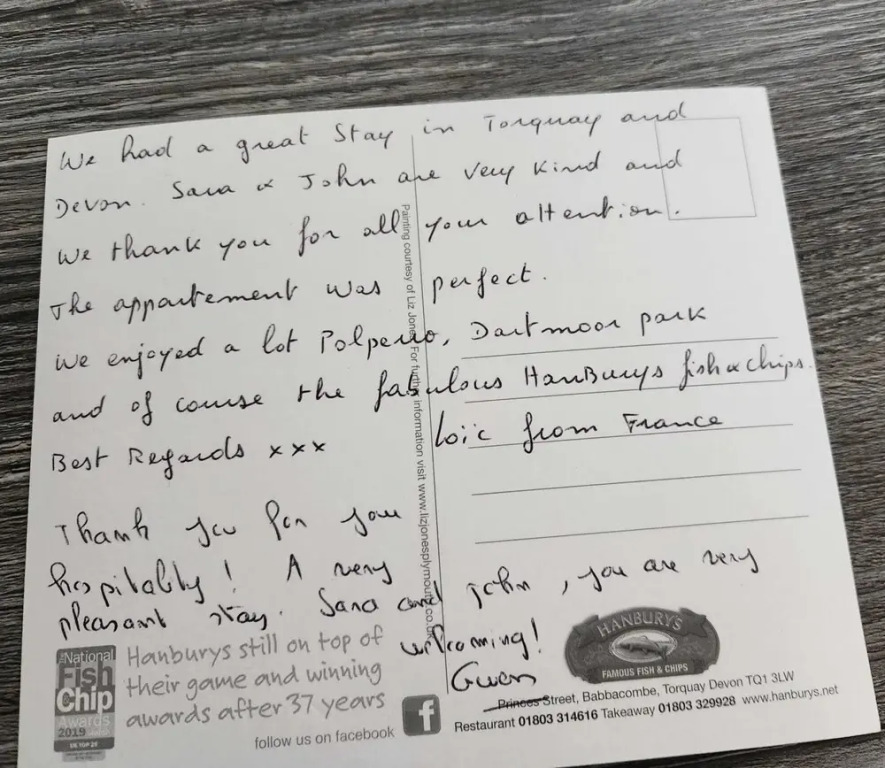 We had a great Stay in Torquay and
Devon. Sara & John are very kind and
We thank you for all your attention.
The appartement was perfect.
We enjoyed a lot Polperro, Dartmoor park
and of course the fabulous HanBurys fish & chips.
Best Regards xxx Loïc from France
Thank you for your
hospitality! A very
pleasant stay. Sara and John, you are very
welcoming!
Gwen
Painting courtesy of Liz Jones. For further information visit www.lizjonesplymouth.co.uk
National
Fish
Chip
Awards
2019
UK TOP 20
Hanburys still on top of
their game and winning
awards after 37 years
follow us on facebook
f
HANBURYS
FAMOUS FISH & CHIPS
Princes Street, Babbacombe, Torquay Devon TQ1 3LW
Restaurant 01803 314616 Takeaway 01803 329928 www.hanburys.net